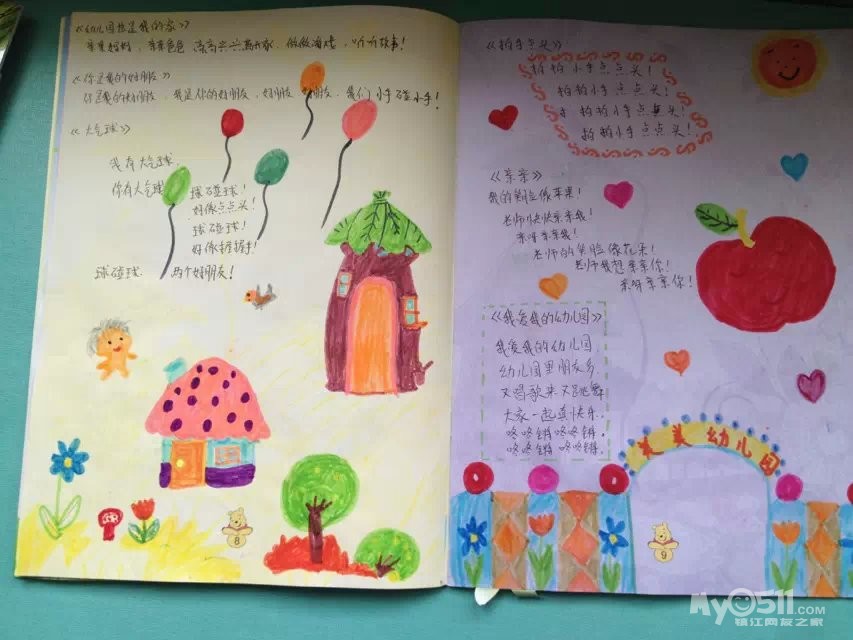 《幼儿园也是我的家》
高高兴兴离开家，做做游戏，听听故事！
《你是我的好朋友》
你是我的好朋友，我是你的好朋友，好朋友，好朋友，我们小手碰小手！
《大气球》
我有大气球，
你有大气球，
球碰球！
好像点点头！
球碰球！
好像握握手！
球碰球，两个好朋友！
《拍手点头》
拍拍小手点点头！
拍拍小手点点头！
拍拍小手点点头！
拍拍小手点点头！
《亲亲》
我的笑脸像苹果！
老师快快亲亲我！
亲呀亲亲我！
老师的笑脸像花朵！
老师我想亲亲你！
亲呀亲亲你！
《我爱我的幼儿园》
我爱我的幼儿园
幼儿园里朋友多
又唱歌来又跳舞
大家一起真快乐。
咚咚锵咚咚锵，
咚咚锵咚咚锵。
美美幼儿园
My0511.com
镇江网友之家